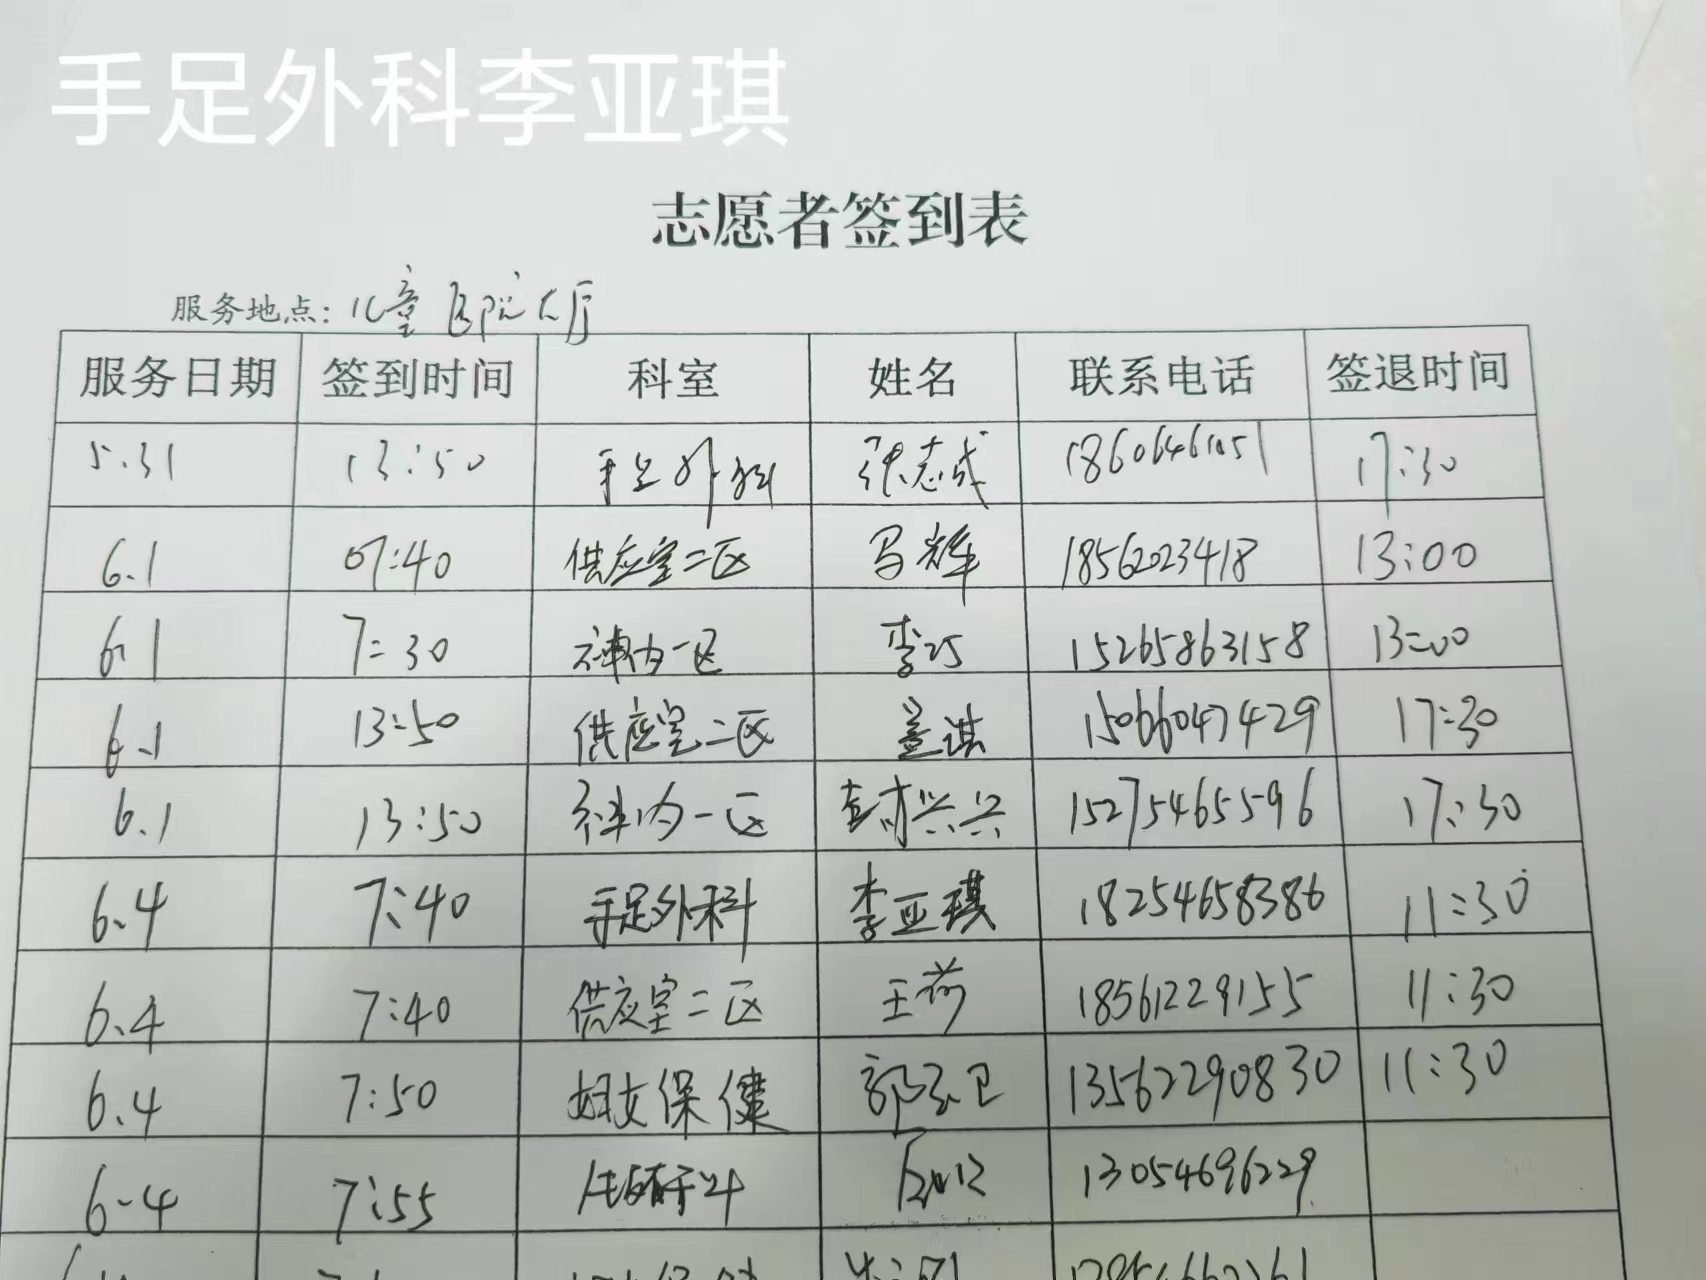 手足外科李亚琪
志愿者签到表
服务地点: 儿童医院大厅
服务日期 签到时间 科室 姓名 联系电话 签退时间
5.31 13:50 手足外科 张志成 18606461051 17:30
6.1 07:40 供应室二区 马辉 18562023418 13:00
6.1 7:30 神内一区 李巧 15265863158 13:00
6.1 13:50 供应室二区 盖琪 15066047429 17:30
6.1 13:50 神内一区 兴兴 15275465596 17:30
6.4 7:40 手足外科 李亚琪 18254658386 11:30
6.4 7:40 供应室二区 王荷 18561229155 11:30
6.4 7:50 妇女保健 郭卫 13562290830 11:30
6-4 7:55 13054696229